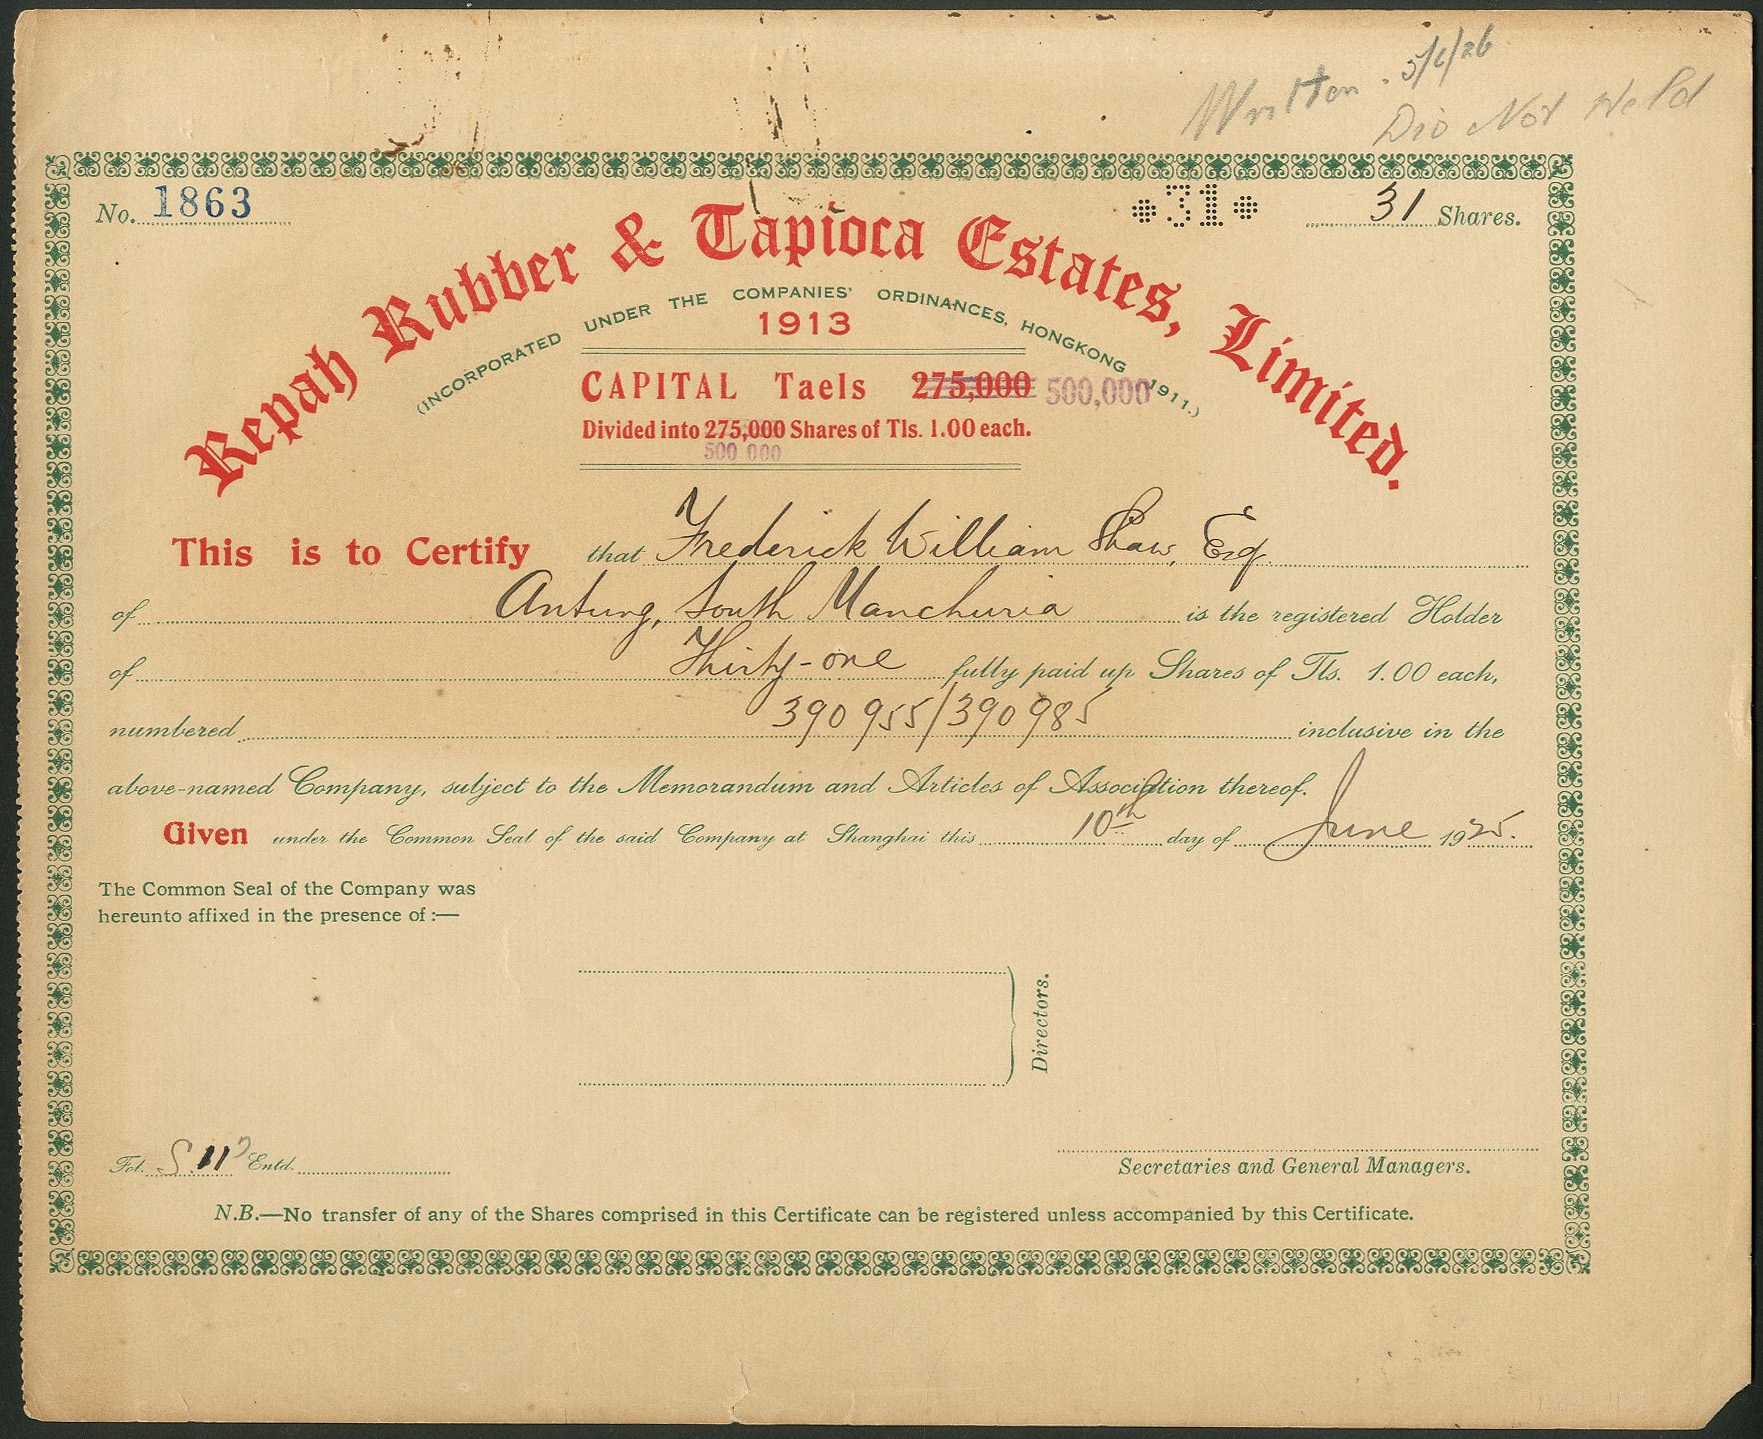 Written. 5/6/26
Div Not Held
No. 1863
*31*
31 Shares.
Repah Rubber & Tapioca Estates, Limited.
(INCORPORATED UNDER THE COMPANIES' ORDINANCES, HONGKONG 1911.)
1913
CAPITAL Taels 275,000 500,000
Divided into 275,000 Shares of Tls. 1.00 each.
500 000
This is to Certify that Frederick William Shaw, Esq.
of Antung, South Manchuria is the registered Holder
of Thirty-one fully paid up Shares of Tls. 1.00 each,
numbered 390955/390985 inclusive in the
above-named Company, subject to the Memorandum and Articles of Association thereof.
Given under the Common Seal of the said Company at Shanghai this 10th day of June 1925.
The Common Seal of the Company was
hereunto affixed in the presence of :—
Directors.
Fol. S. 11 Entd.
Secretaries and General Managers.
N.B.—No transfer of any of the Shares comprised in this Certificate can be registered unless accompanied by this Certificate.